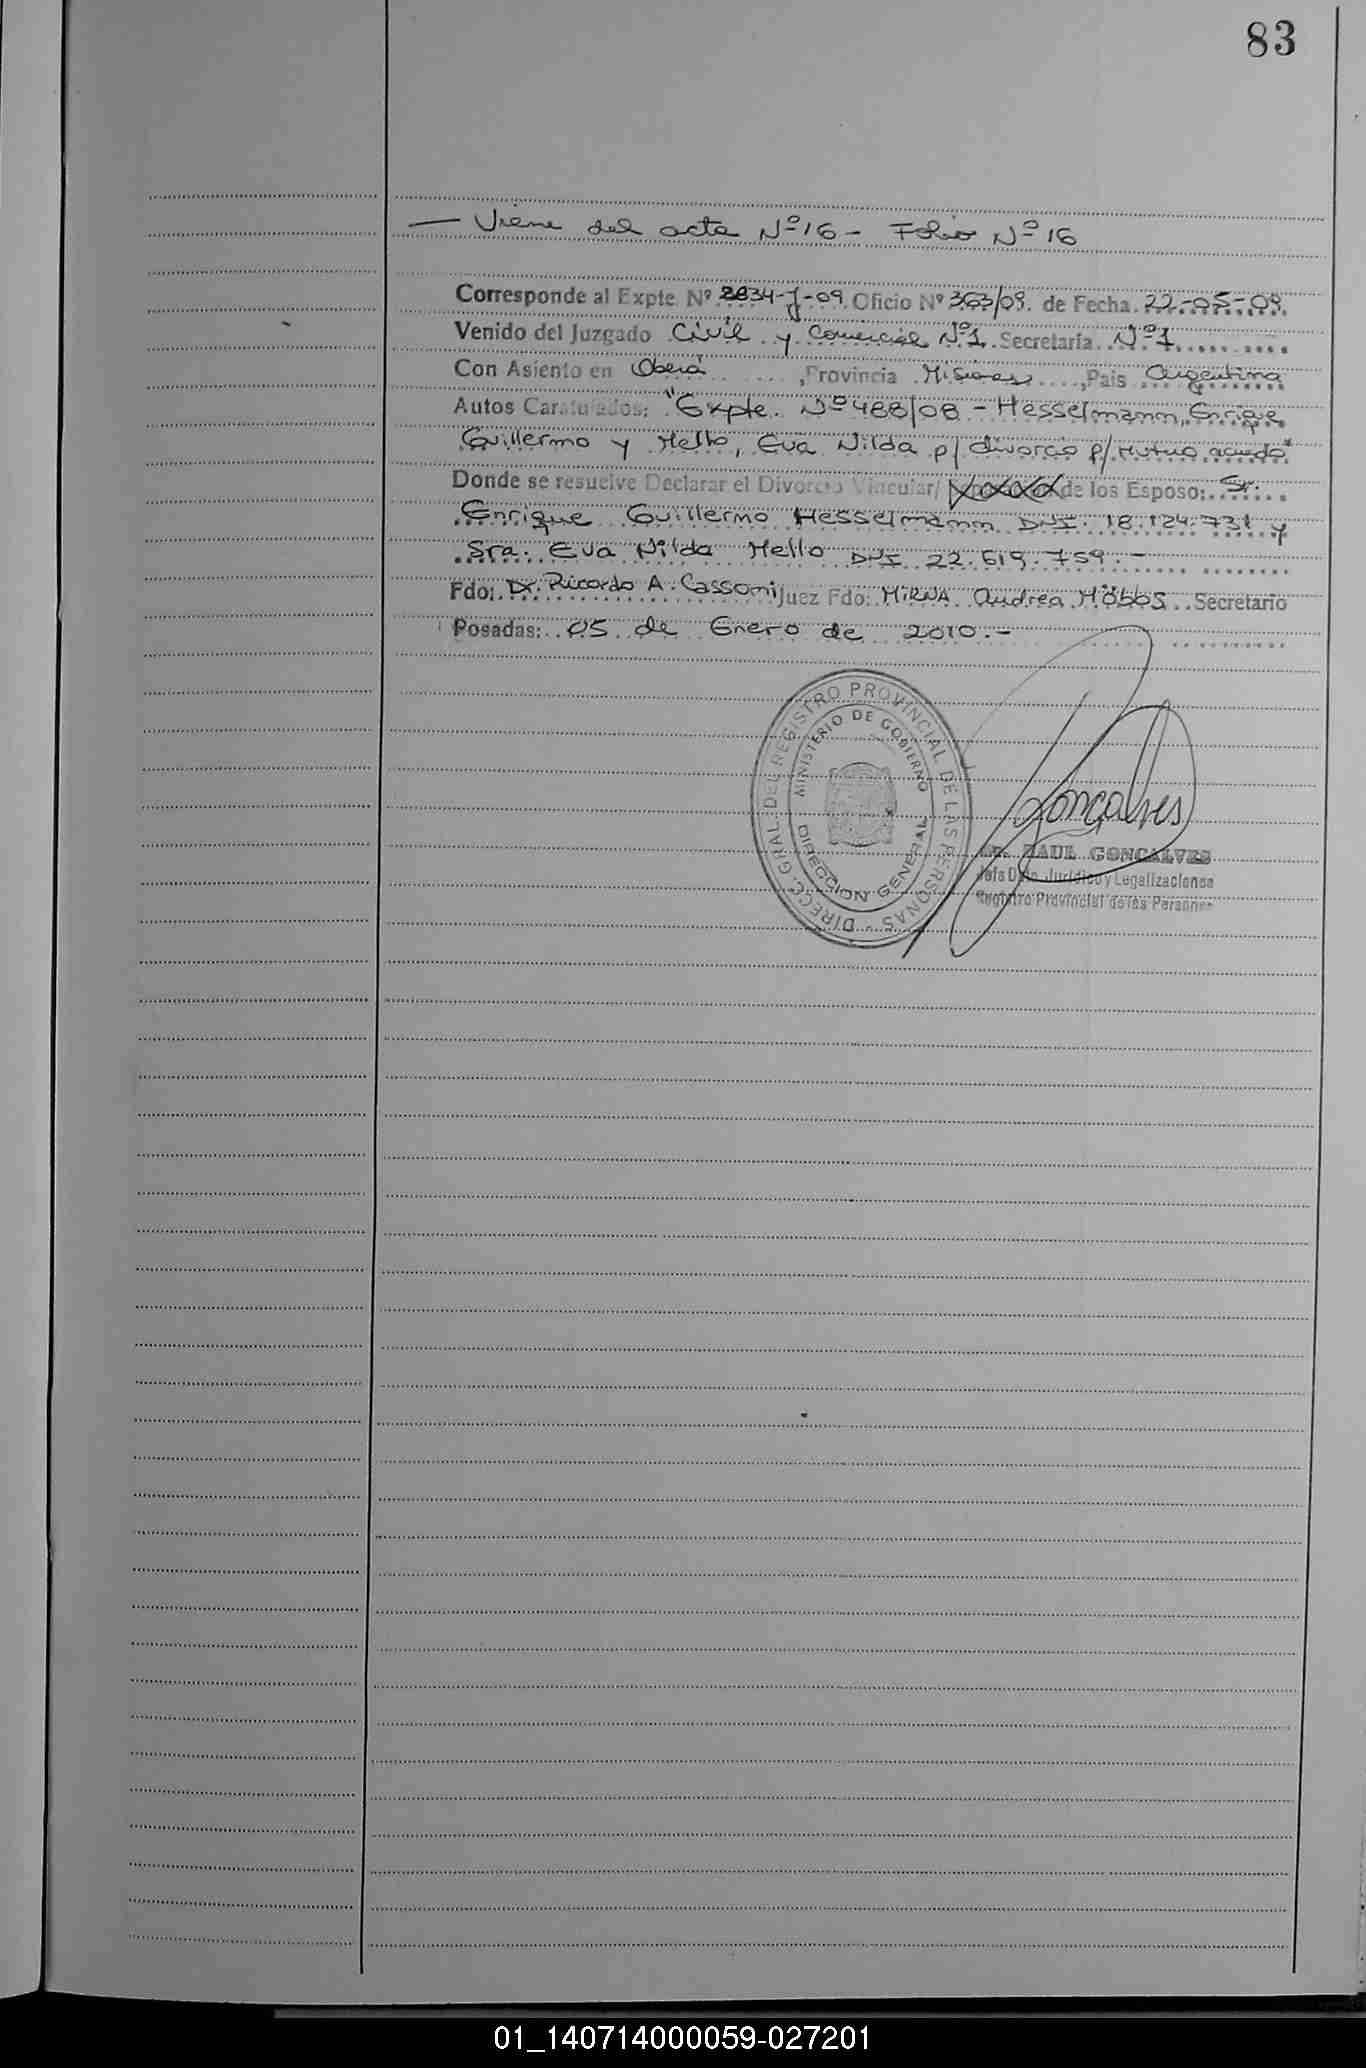 83
— Viene del acta Nº 16 - Folio Nº 16
Corresponde al Expte. Nº 2834-J-09. Oficio Nº 363/09. de Fecha. 22-05-09.
Venido del Juzgado Civil y Comercial Nº1. Secretaría. Nº 1
Con Asiento en Oberá ,Provincia Misiones ,País Argentina
Autos Caratulados: "Expte. Nº 488/08 - Hesselmann, Enrique
Guillermo y Mello, Eva Nilda p/ divorcio p/ Mutuo acuerdo"
Donde se resuelve Declarar el Divorcio Vincular/ de los Esposo: Sr.
Enrique Guillermo Hesselmann DNI. 18.124.731 y
Sra. Eva Nilda Mello DNI 22.619.759.-
Fdo: Dr. Ricardo A. Cassoni Juez Fdo: MIRNA Andrea Höbbs. Secretario
Posadas: 05 de Enero de 2010.-
DIRECC. GRAL. DEL REGISTRO PROVINCIAL DE LAS PERSONAS -
MINISTERIO DE GOBIERNO
DIRECCION GENERAL
Gonçalves
Dr. RAUL GONCALVES
Jefe Dpto. Jurídico y Legalizaciones
Registro Provincial de las Personas
01_140714000059-027201